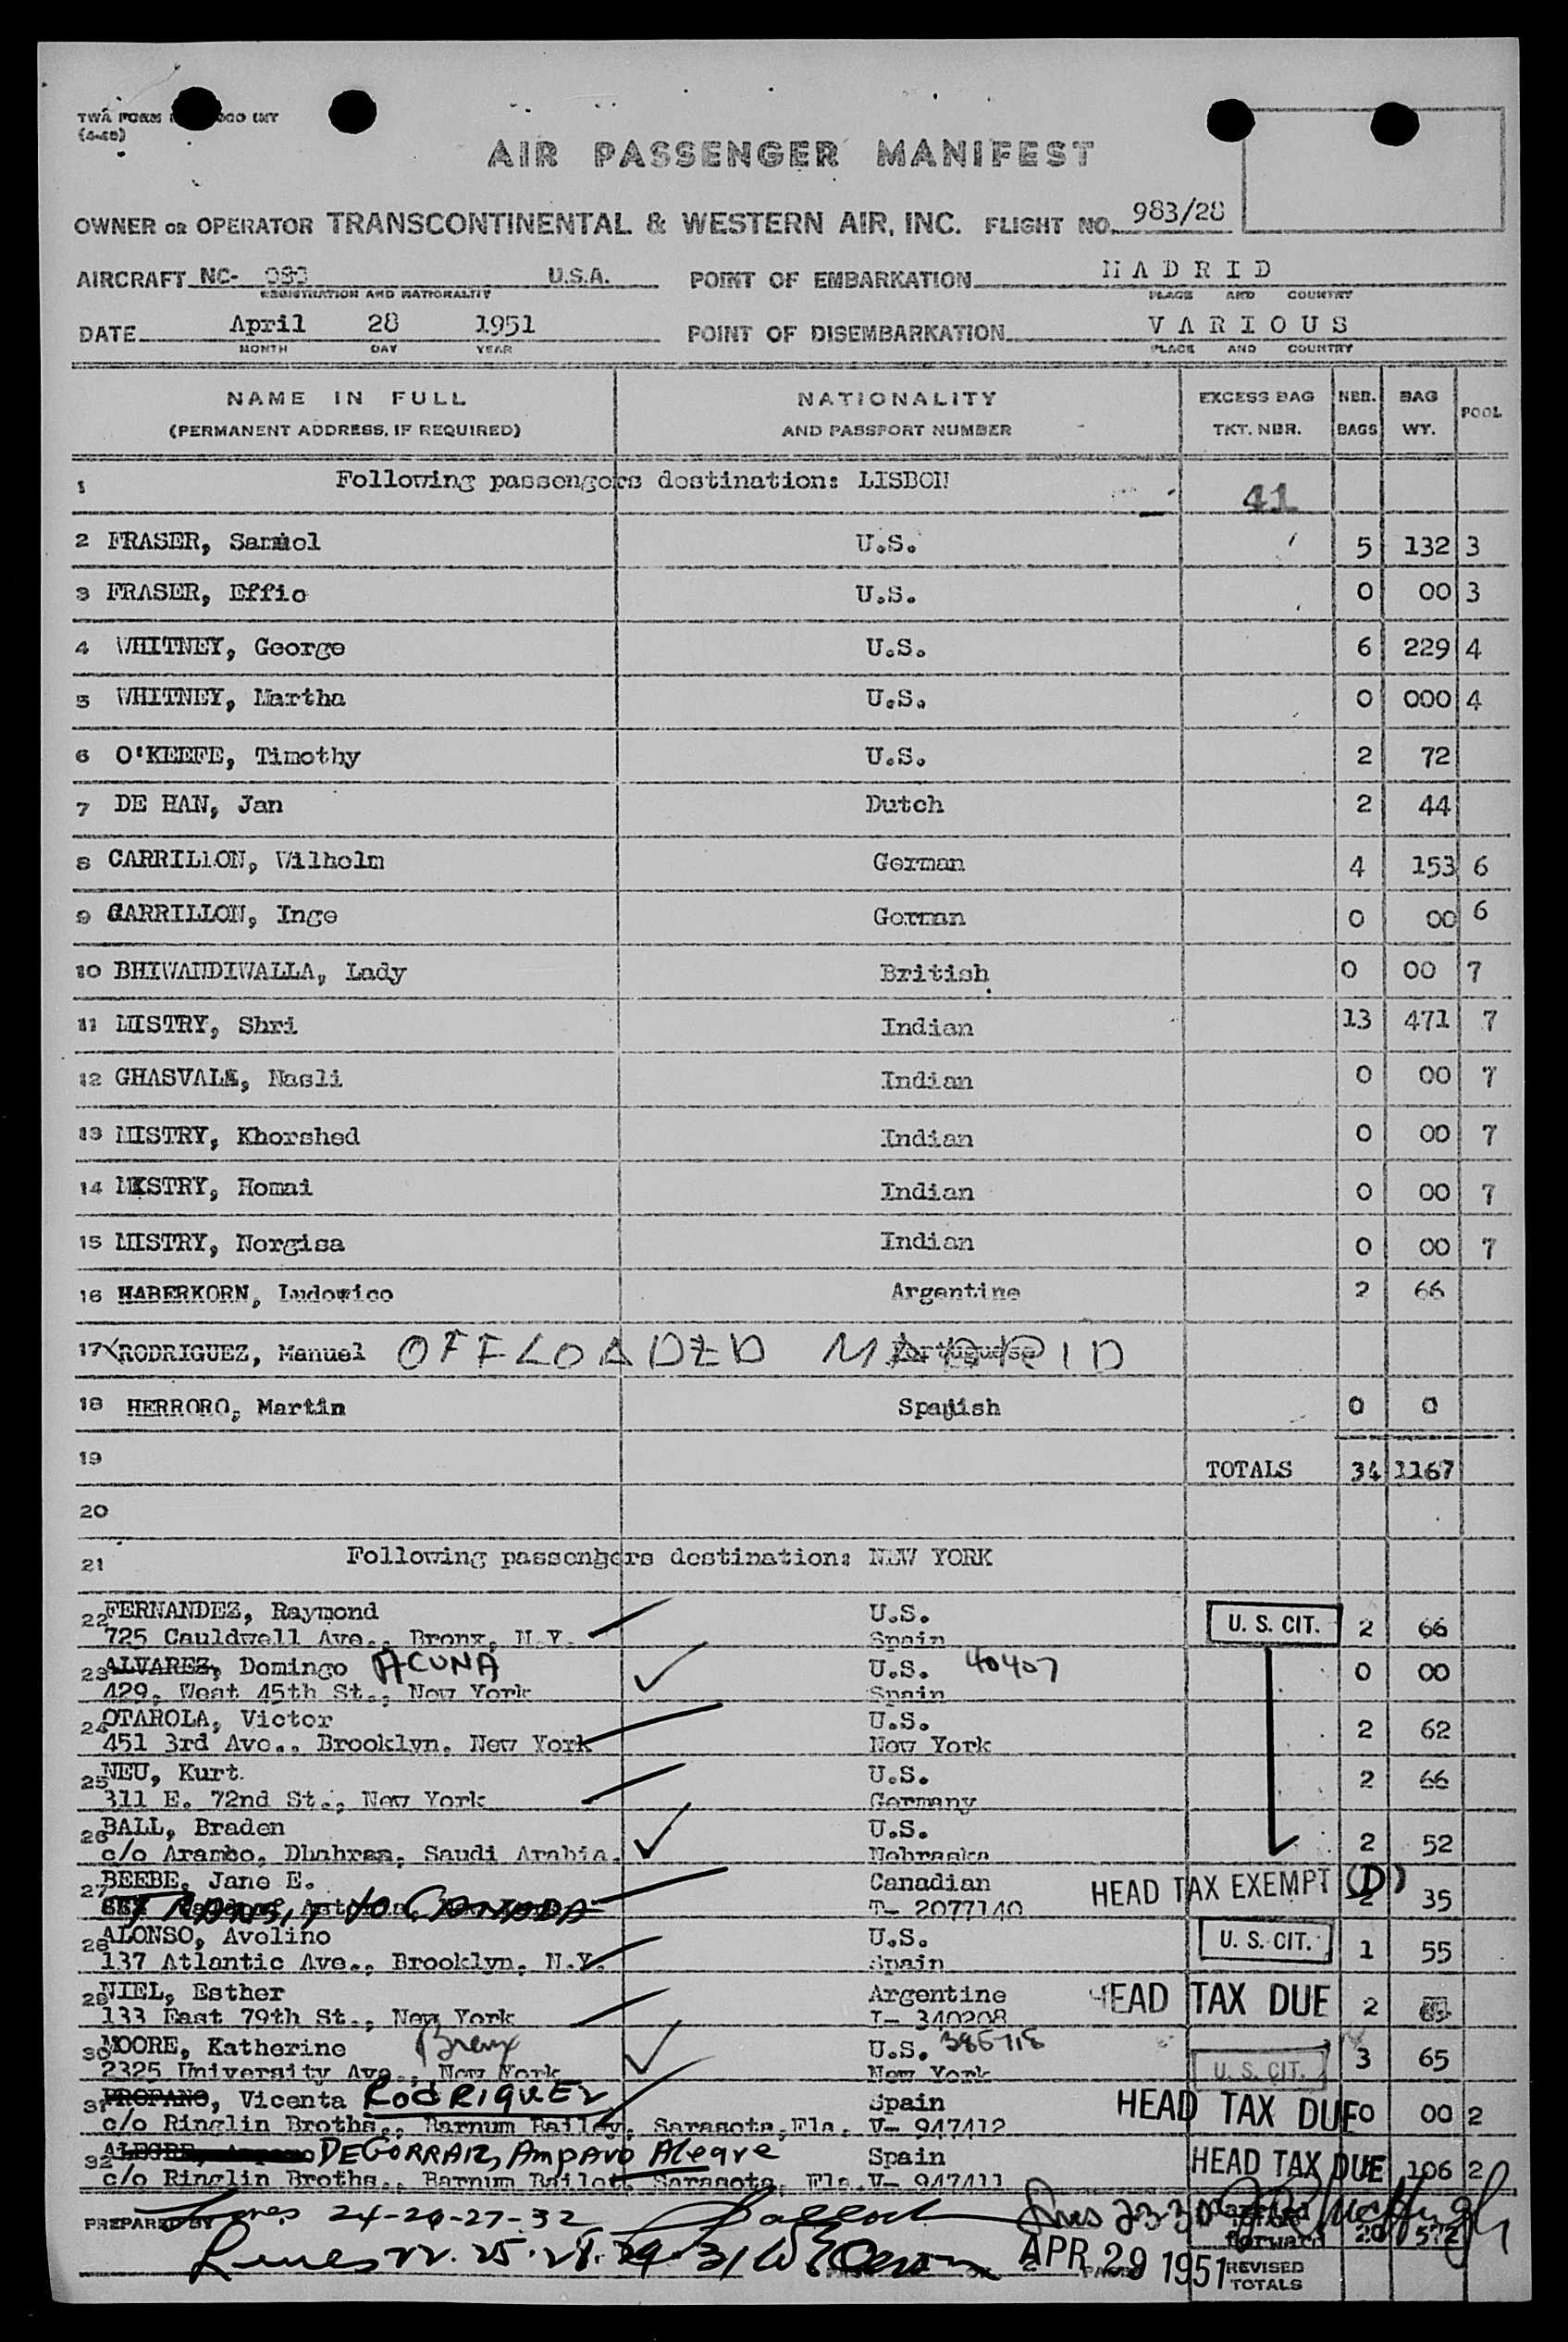 TWA FORM
(4-48)
AIR PASSENGER MANIFEST
OWNER OR OPERATOR TRANSCONTINENTAL & WESTERN AIR, INC. FLIGHT NO. 983/28
AIRCRAFT NC- U.S.A. POINT OF EMBARKATION MADRID
REGISTRATION AND NATIONALITY PLACE AND COUNTRY
DATE April 28 1951 POINT OF DISEMBARKATION VARIOUS
MONTH DAY YEAR PLACE AND COUNTRY
NAME IN FULL NATIONALITY EXCESS BAG NBR. BAG POOL
(PERMANENT ADDRESS, IF REQUIRED) AND PASSPORT NUMBER TKT. NBR. BAGS WT.
1 Following passengers destination: LISBON 41
2 FRASER, Samuol U.S. 5 132 3
3 FRASER, Effie U.S. 0 00 3
4 WHITNEY, George U.S. 6 229 4
5 WHITNEY, Martha U.S. 0 000 4
6 O'KEEFE, Timothy U.S. 2 72
7 DE HAN, Jan Dutch 2 44
8 CARRILLON, Wilhelm German 4 153 6
9 CARRILLON, Inge German 0 00 6
10 BHIWANDIWALLA, Lady British 0 00 7
11 MISTRY, Shri Indian 13 471 7
12 GHASVALA, Nasli Indian 0 00 7
13 MISTRY, Khorshed Indian 0 00 7
14 MISTRY, Homai Indian 0 00 7
15 MISTRY, Norgisa Indian 0 00 7
16 HABERKORN, Ludowico Argentine 2 66
17 RODRIGUEZ, Manuel OFFLOADED MADRID Portuguese
18 HERRORO, Martin Spanish 0 0
19 TOTALS 34 1167
20
21 Following passengers destination: NEW YORK
22 FERNANDEZ, Raymond U.S. U. S. CIT. 2 66
725 Cauldwell Ave., Bronx, N.Y. Spain
23 ALVAREZ, Domingo ACUNA U.S. 40407 0 00
429, West 45th St., New York Spain
24 OTAROLA, Victor U.S. 2 62
451 3rd Ave., Brooklyn, New York New York
25 NEU, Kurt. U.S. 2 66
311 E. 72nd St., New York Germany
26 BALL, Braden U.S. 2 52
c/o Arambo, Dhahran, Saudi Arabia. Nebraska
27 BEEBE, Jane E. Canadian HEAD TAX EXEMPT (D) 2 35
TRANSIT to CANADA T- 2077140
28 ALONSO, Avelino U.S. U. S. CIT. 1 55
137 Atlantic Ave., Brooklyn, N.Y. Spain
29 NIEL, Esther Argentine HEAD TAX DUE 2
133 East 79th St., New York I- 340208
30 MOORE, Katherine Bronx U.S. 386718 U. S. CIT. 3 65
2325 University Ave., New York New York
31 PROFANO, Vicenta RODRIGUEZ Spain HEAD TAX DUE 0 00 2
c/o Ringlin Broths., Barnum Bailey, Sarasota, Fla. V- 947412
32 DEGORRAIZ, Amparo Alegre Spain HEAD TAX DUE 106 2
c/o Ringlin Broths., Barnum Bailot, Sarasota, Fla. V- 947411
PREPARED BY Lines 24-26-27-32 Lines 23 30
forward 20 572
Lines 22. 25. 28. 29. 31 APR 29 1951 REVISED
TOTALS